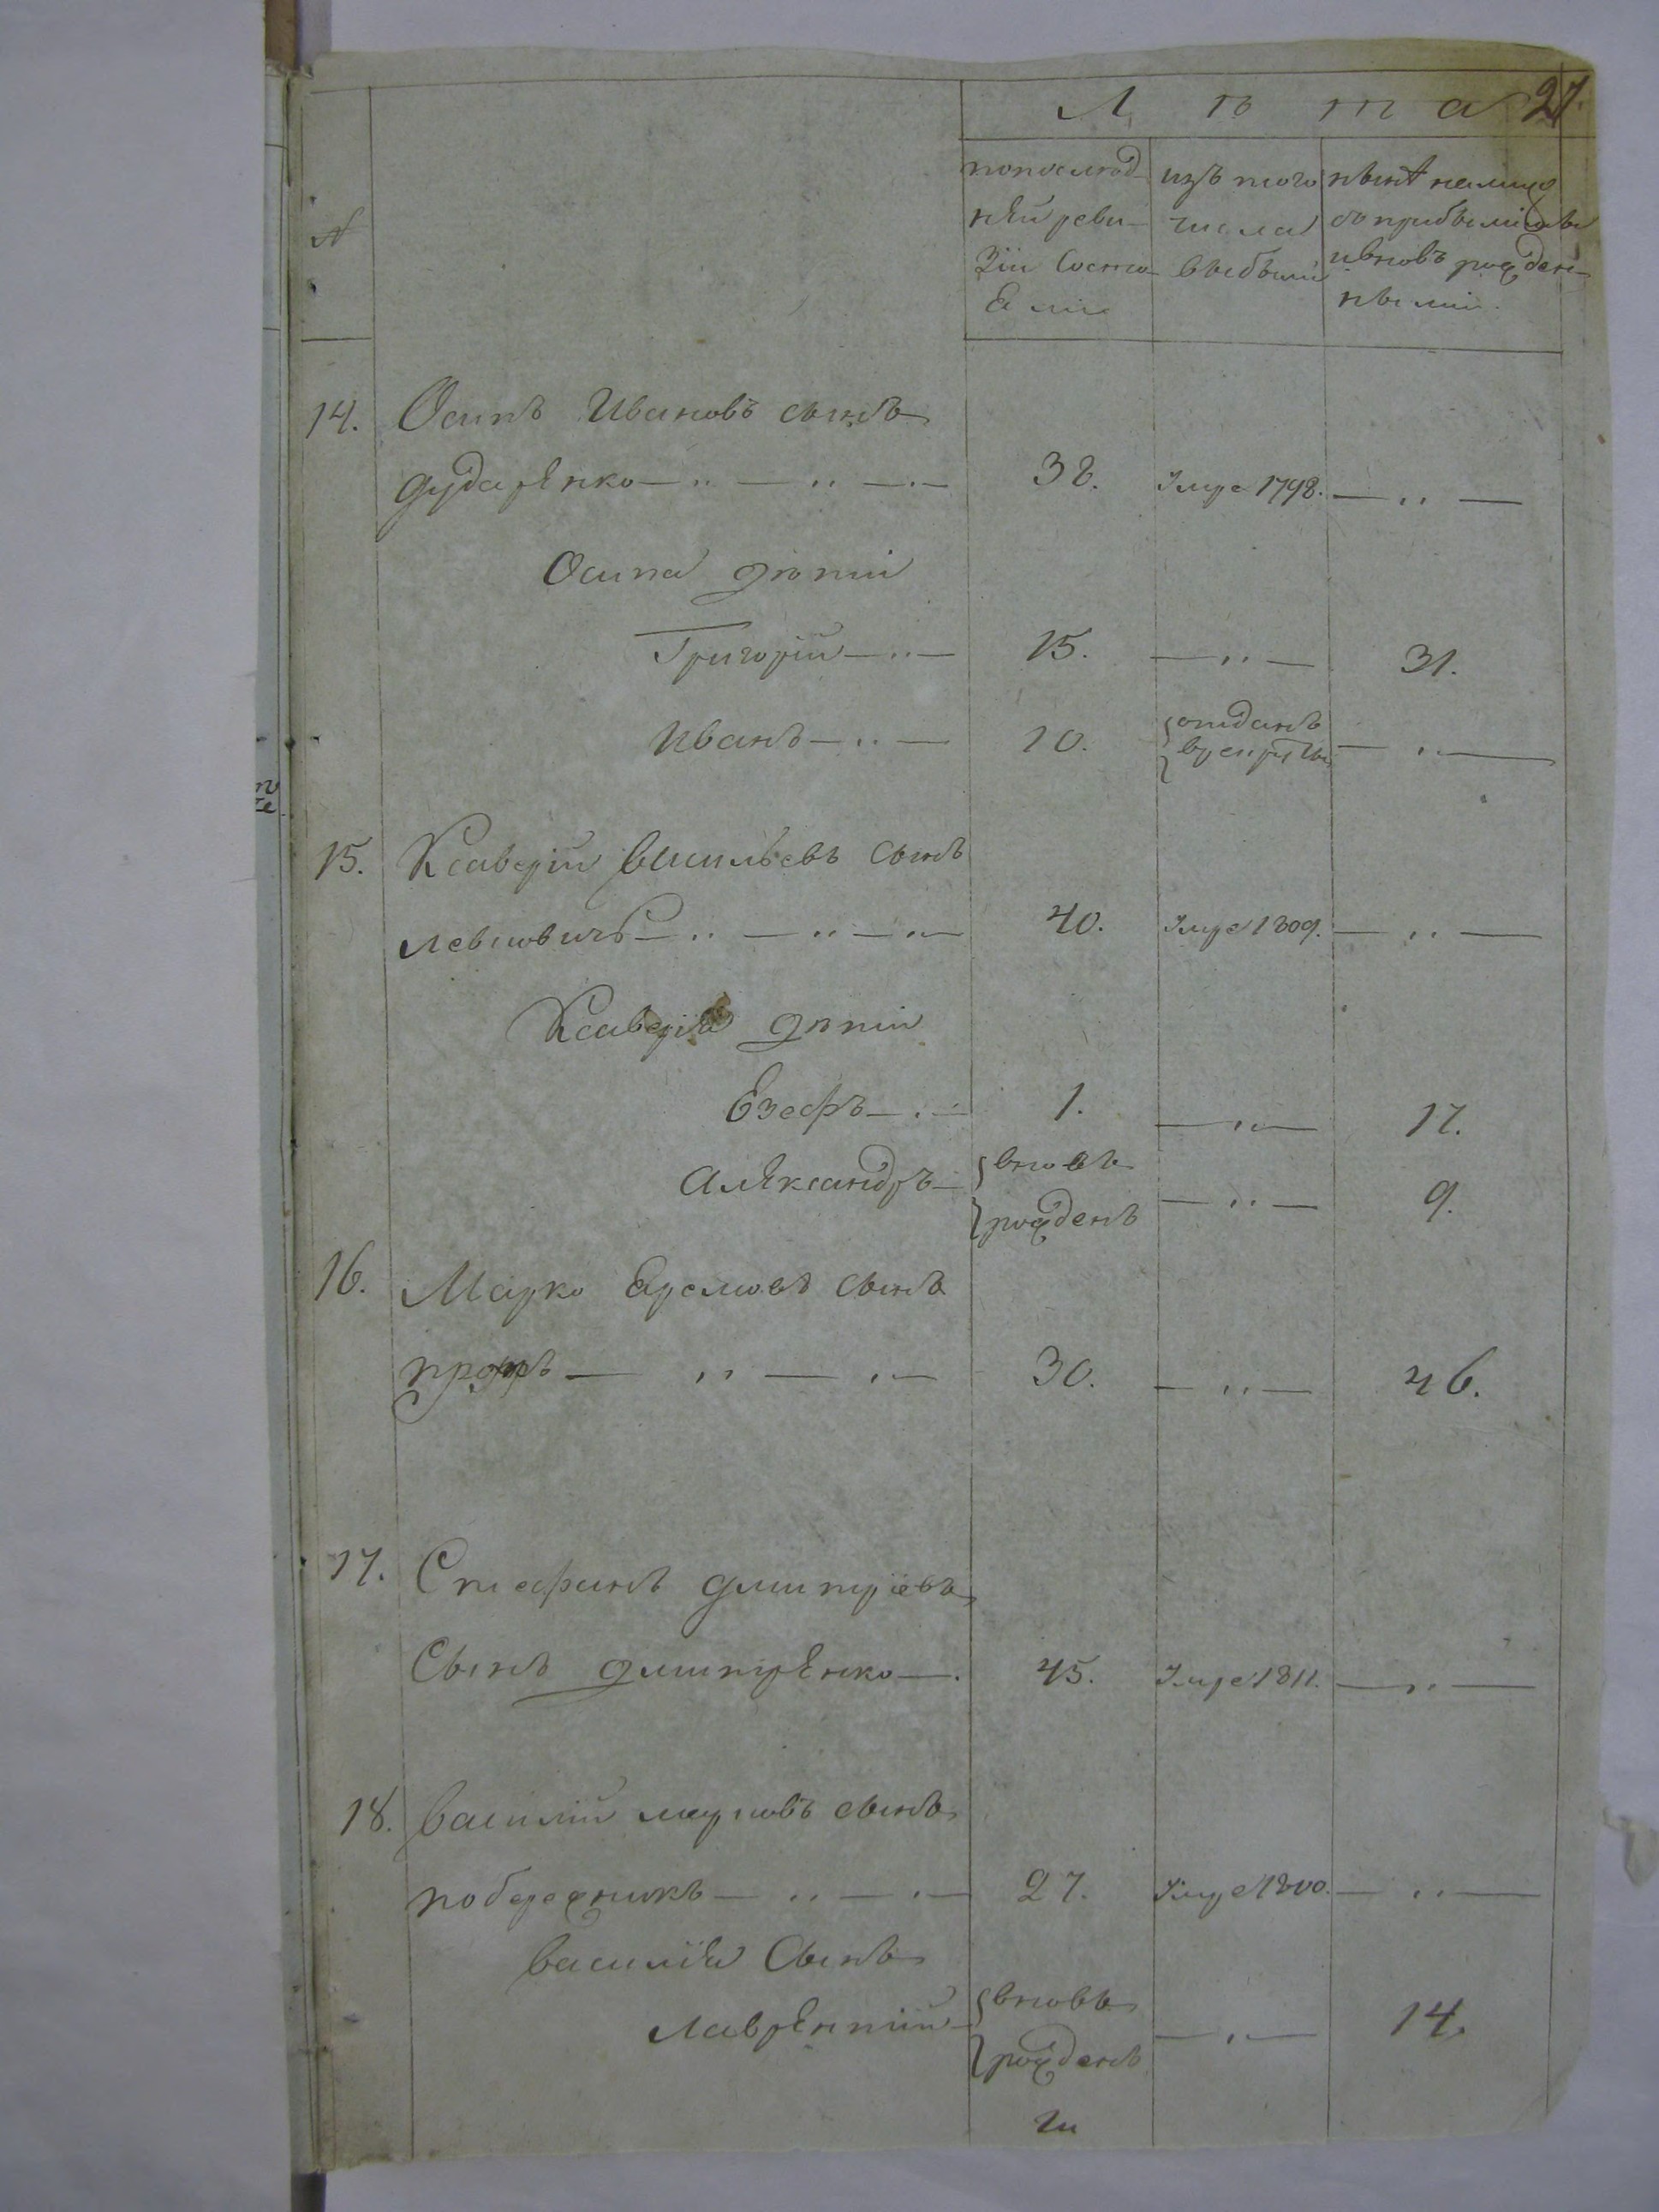 Лѣта 27.
№
попослѣд- изъ того нынѣ налицо
ней реви- числа съ прибылыми
зіи Состо- выбыли ивновь рожден-
яли ными.
14. Осипъ Ивановъ сынъ
дударенко — 38. Умре 1798. —
Осипа дѣти
Григорій — 15. — 31.
Иванъ — 10. отданъ
врекруты —
15. Ксаверій васильевъ сынъ
левковичъ — 40. Умре 1809. —
Ксаверія дѣти
Езефъ — 1. — 17.
Александръ — вновь
рожденъ — 9.
16. Марко Еремовъ сынъ
— 30. — 46.
17. Стефанъ дмитріевъ
Сынъ дмитренко — 45. Умре 1811. —
18. василій марковъ сынъ
побережникъ — 27. Умре 1800. —
василія Сынъ
лаврентій — вновь
рожденъ — 14.